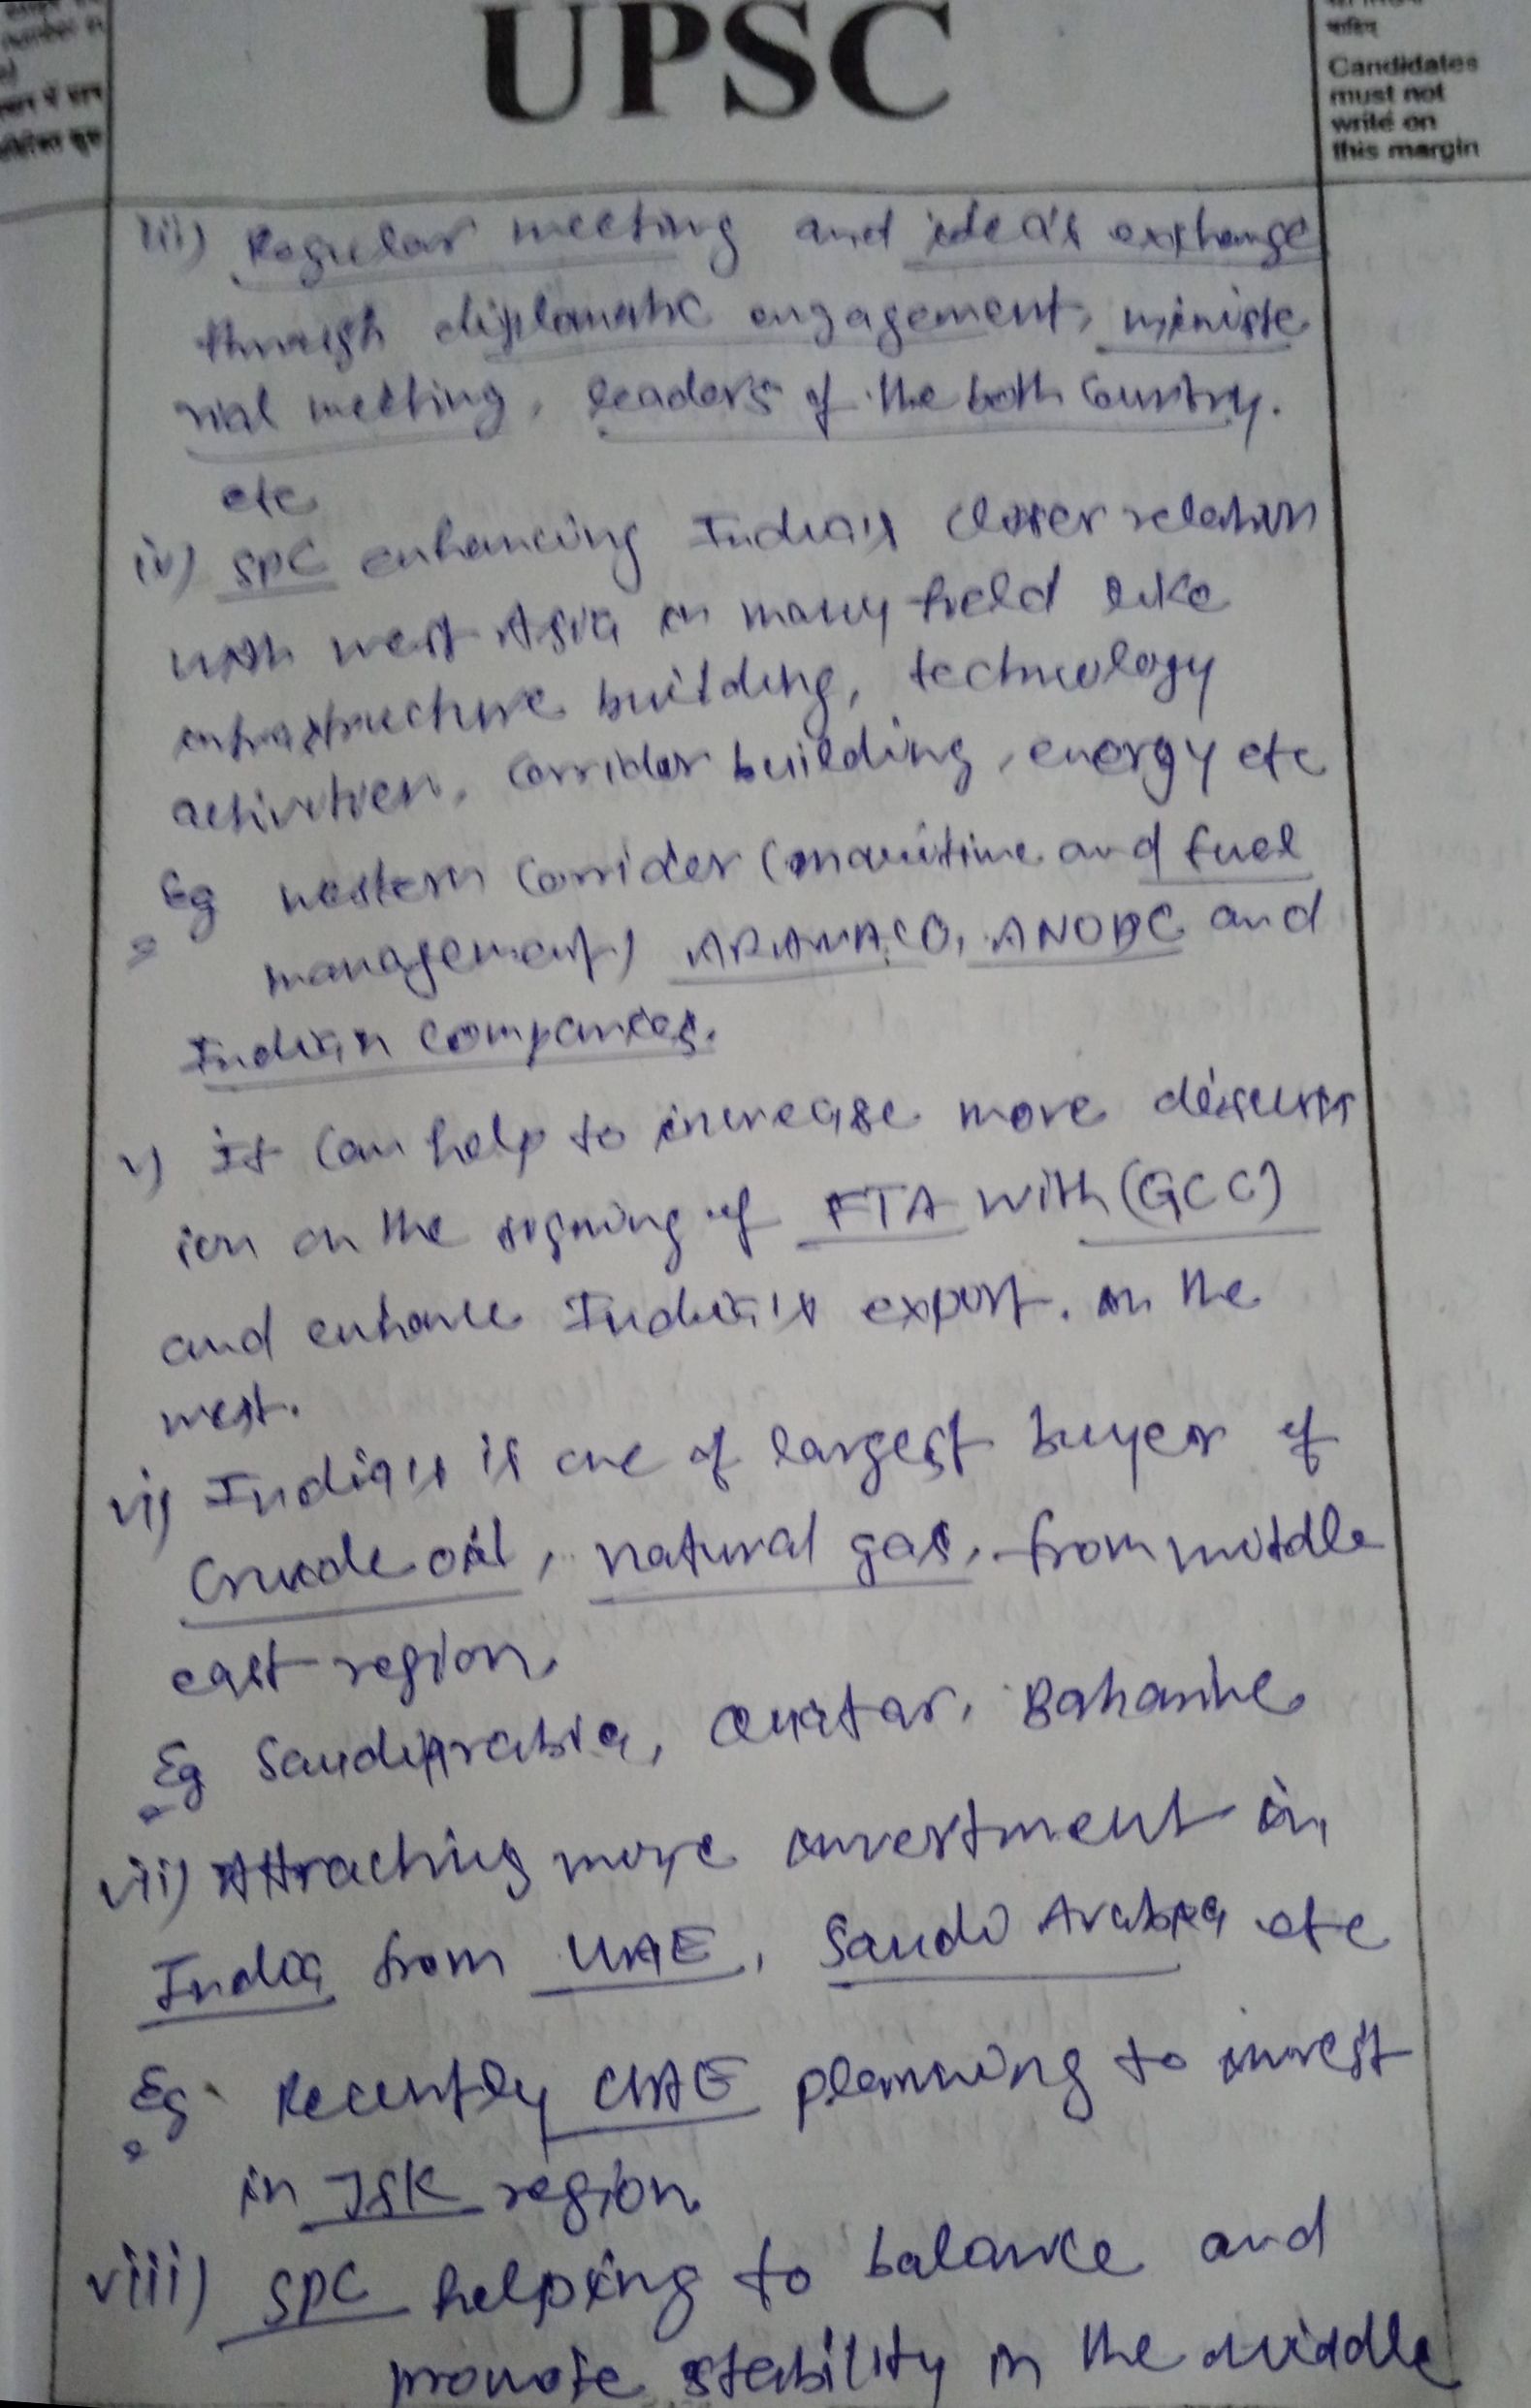 UPSC
Candidates
must not
write on
this margin
iii) Regular meeting and idea's exchange
through diplomatic engagement, ministe
rial meeting, leaders of the both Country.
etc
iv) SPC enhancing India's closer relation
with west Asia in many field like
infrastructure building, technology
activities, corridor building, energy etc
Eg western Corridor (maritime and fuel
management) ARAMACO, ANODC and
Indian companies.
v) It can help to increase more discuss
ion on the signing of FTA with (GCC)
and enhance India's export. in the
west.
vi) India's is one of largest buyer of
Crude oil, natural gas, from middle
east region.
Eg SaudiArabia, Quatar, Baharine
vii) Attracting more investment in
India from UAE, Saudi Arabia etc
Eg. Recently UAE planning to invest
in J&K region
viii) SPC helping to balance and
promote stability in the middle